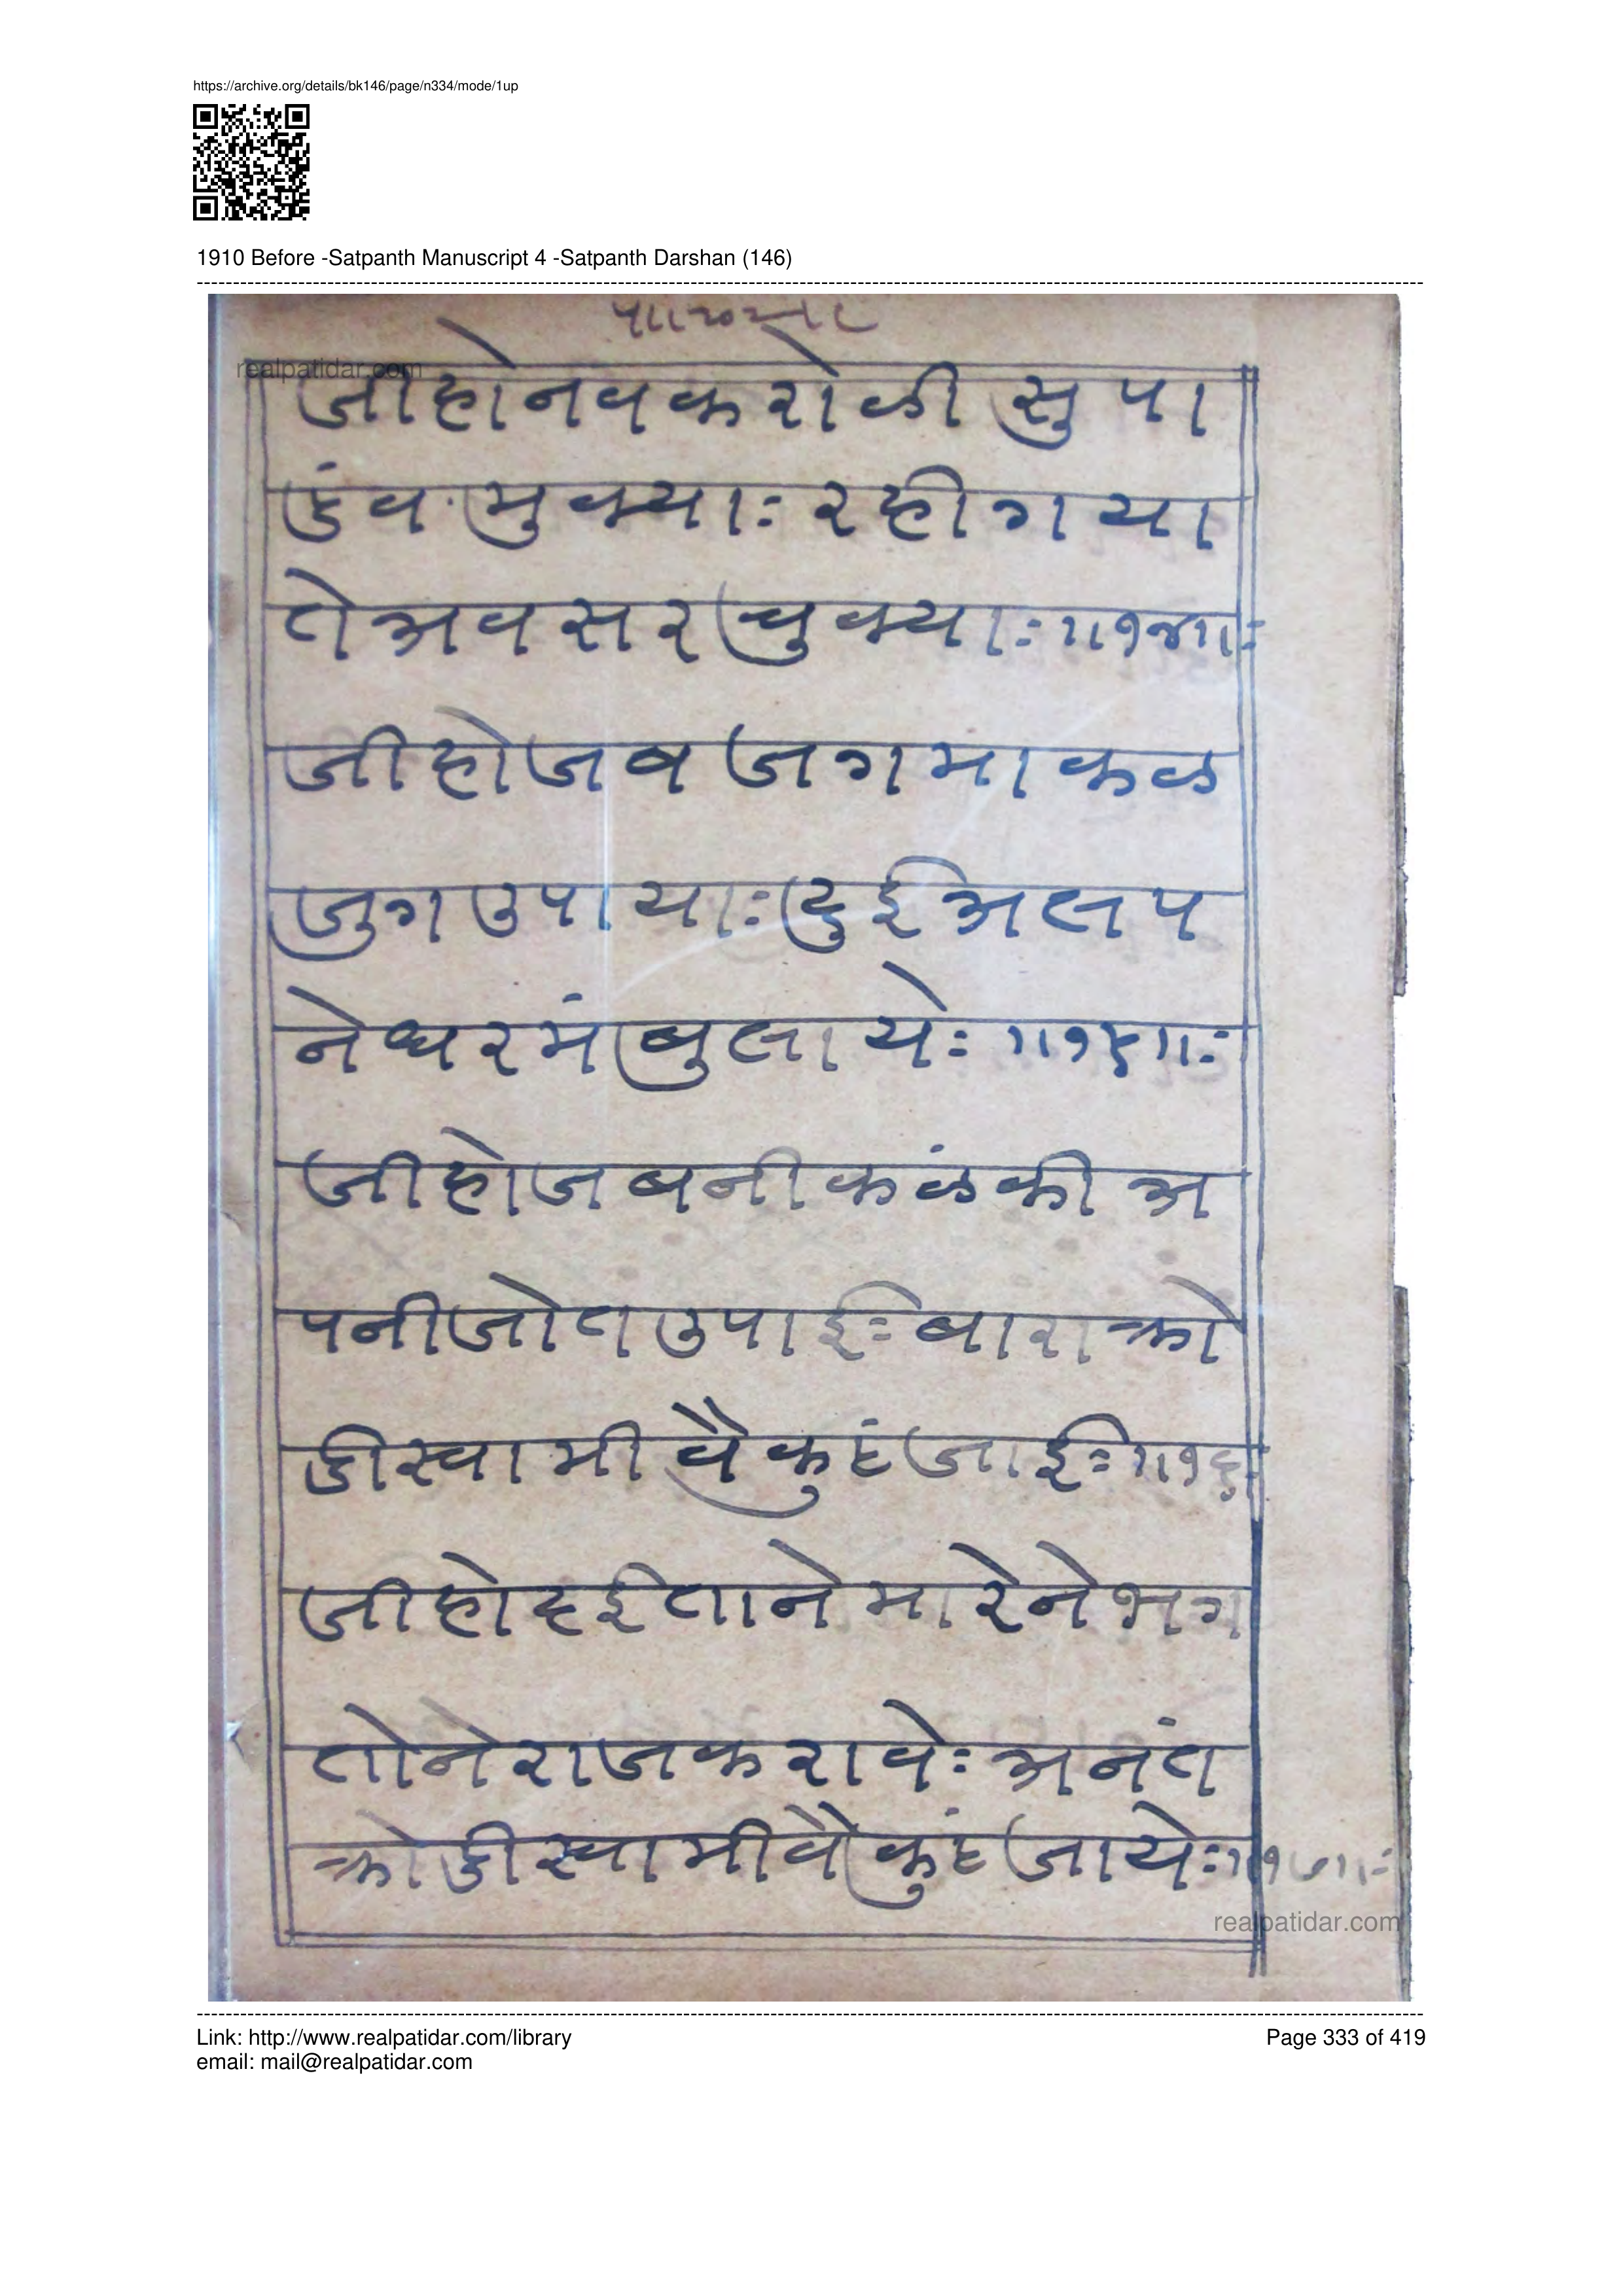 https://archive.org/details/bk146/page/n334/mode/1up
1910 Before -Satpanth Manuscript 4 -Satpanth Darshan (146)
realpatidar.com
जीहोनवकरोळी सु पा
डंव मुक्याः रहीगया
तेअवसर चुक्याः॥१४॥ः
जीहोजब जगमा कळ
जुग उपायाः दुईअलप
नेधरमं बुलायेः ॥१५॥ः
जीहोजबनीकळंकी अ
पनीजोत उपाईः बाराक्रो
डीस्वामी वैकुंठ जाईः॥१६॥ः
जीहोदईताने मारेनेभग
तोनेराजकरावेः अनंत
क्रोडीस्वामीवैकुंठ जायेः॥१७॥ः
realpatidar.com
Link: http://www.realpatidar.com/library
Page 333 of 419
email: mail@realpatidar.com